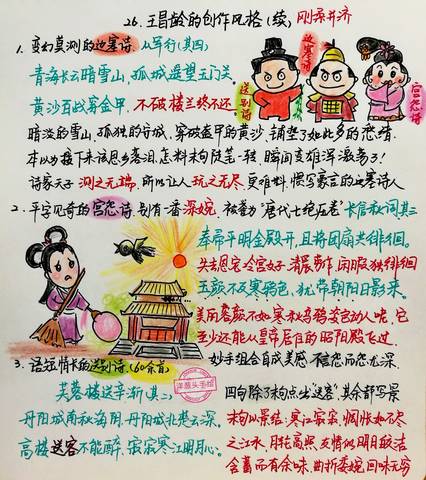 26. 王昌龄的创作风格(续) 刚柔并济
1. 变幻莫测的边塞诗, 从军行(其四)
青海长云暗雪山, 孤城遥望玉门关,
黄沙百战穿金甲, 不破楼兰终不还。
送别诗
边塞诗
宫怨诗
暗淡的雪山, 孤独的守城, 穿破盔甲的黄沙, 铺垫了如此多的悲情
本以为接下来该思乡落泪, 怎料末句陡笔一转, 瞬间变雄浑激荡了!
诗家天子 测之无端, 所以让人 玩之无尽, 更难料 惯写豪言的边塞诗人
2. 平字见奇的宫怨诗, 别有一番 深婉, 被誉为"唐代七绝压卷" 长信秋词 其三
奉帚平明金殿开, 且将团扇共徘徊。
失去恩宠冷宫好 清晨劳作, 闲暇独徘徊
玉颜不及寒鸦色, 犹带朝阳日影来。
美丽容颜不如寒秋乌鸦姿容动人呢, 它
至少还能从皇帝居住的昭阳殿飞过
妙手组合自成美感 不言怨而怨尤深
3. 语短情长的送别诗(60余首)
洋葱头手绘
芙蓉楼送辛渐(其二)
丹阳城南秋海阴, 丹阳城北楚云深,
高楼送客不能醉, 寂寂寒江明月心。
四句除了末句点出"送客", 其余都写景
末句以景结: 寒江寂寂, 惆怅如不尽
之江水, 月轮高照, 友情似明月皎洁
含蓄而有余味, 曲折委婉, 回味无穷